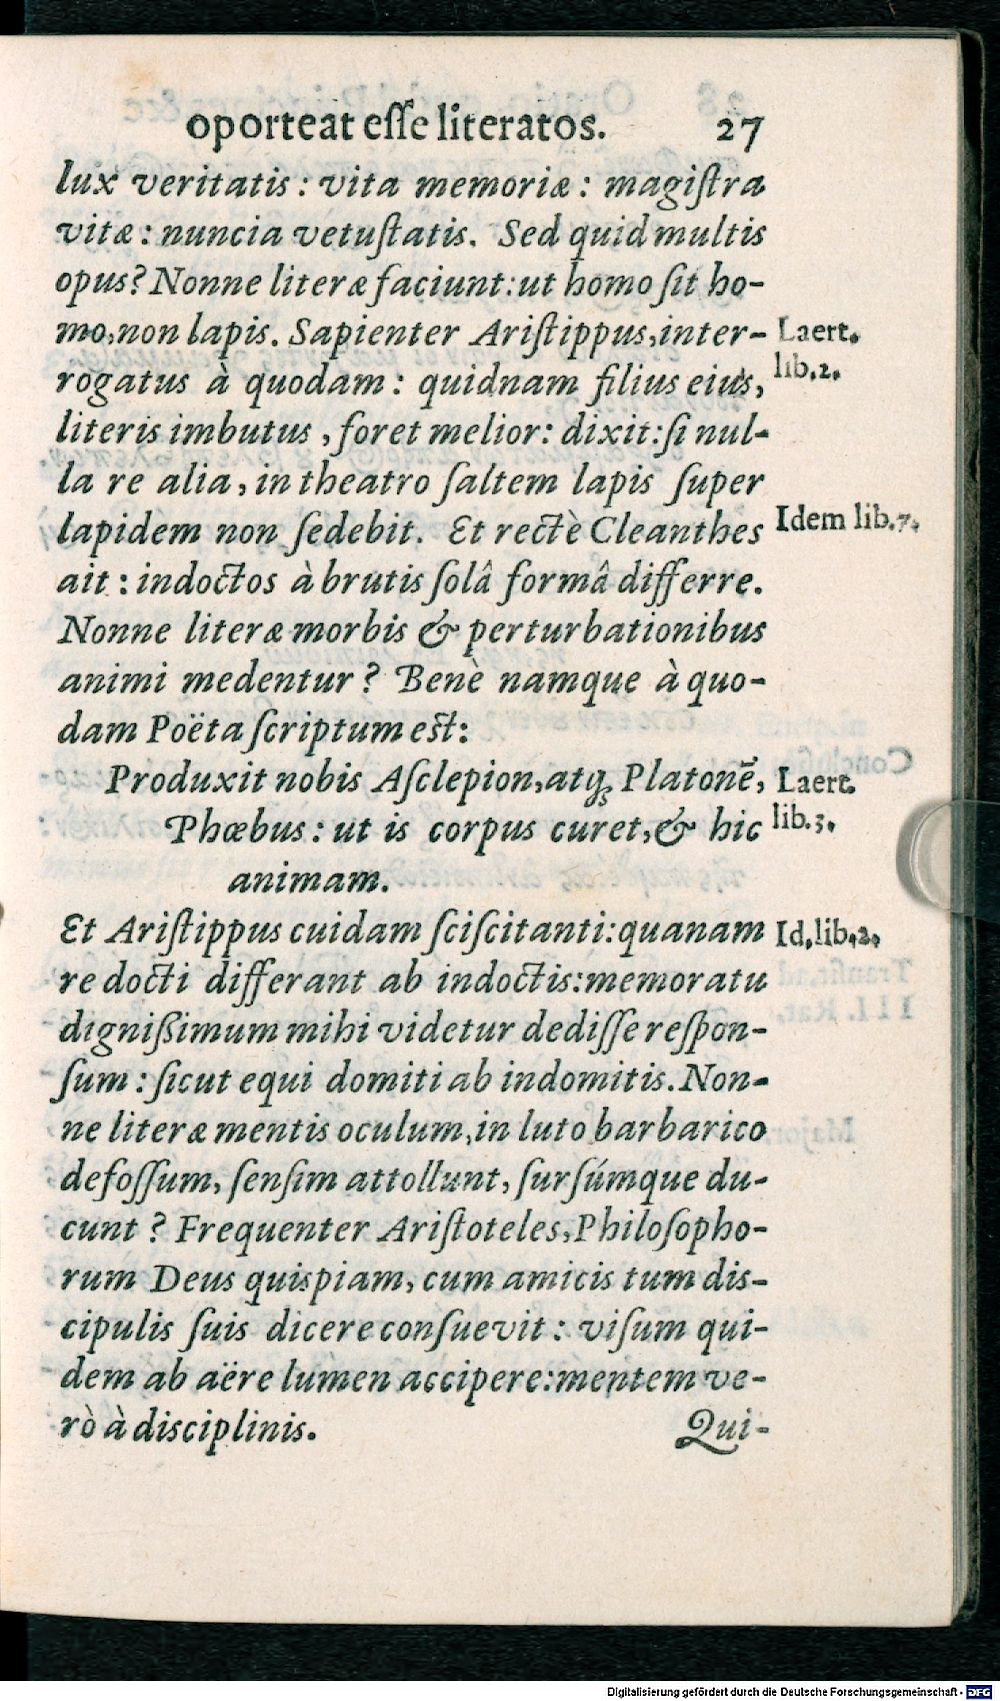 oporteat eſſe literatos. 27
lux veritatis: vita memoriæ: magiſtra
vitæ: nuncia vetuſtatis. Sed quid multis
opus? Nonne literæ faciunt: ut homo ſit ho-
mo, non lapis. Sapienter Ariſtippus, inter-
Laert.
rogatus à quodam: quidnam filius eius,
lib. 2.
literis imbutus, foret melior: dixit: ſi nul-
la re alia, in theatro ſaltem lapis ſuper
lapidem non ſedebit. Et rectè Cleanthes
Idem lib. 7.
ait: indoctos à brutis ſolâ formâ differre.
Nonne literæ morbis & perturbationibus
animi medentur? Benè namque à quo-
dam Poëta ſcriptum eſt:
Produxit nobis Aſclepion, atq́; Platonē,
Laert.
Phœbus: ut is corpus curet, & hic
lib. 3.
animam.
Et Ariſtippus cuidam ſciſcitanti: quanam
Id. lib. 2.
re docti differant ab indoctis: memoratu
digniſſimum mihi videtur dediſſe reſpon-
ſum: ſicut equi domiti ab indomitis. Non-
ne literæ mentis oculum, in luto barbarico
defoſſum, ſenſim attollunt, ſurſúmque du-
cunt? Frequenter Ariſtoteles, Philoſopho-
rum Deus quispiam, cum amicis tum dis-
cipulis ſuis dicere conſuevit: viſum qui-
dem ab aëre lumen accipere: mentem ve-
rò à disciplinis.
Qui-
Digitalisierung gefördert durch die Deutsche Forschungsgemeinschaft - DFG